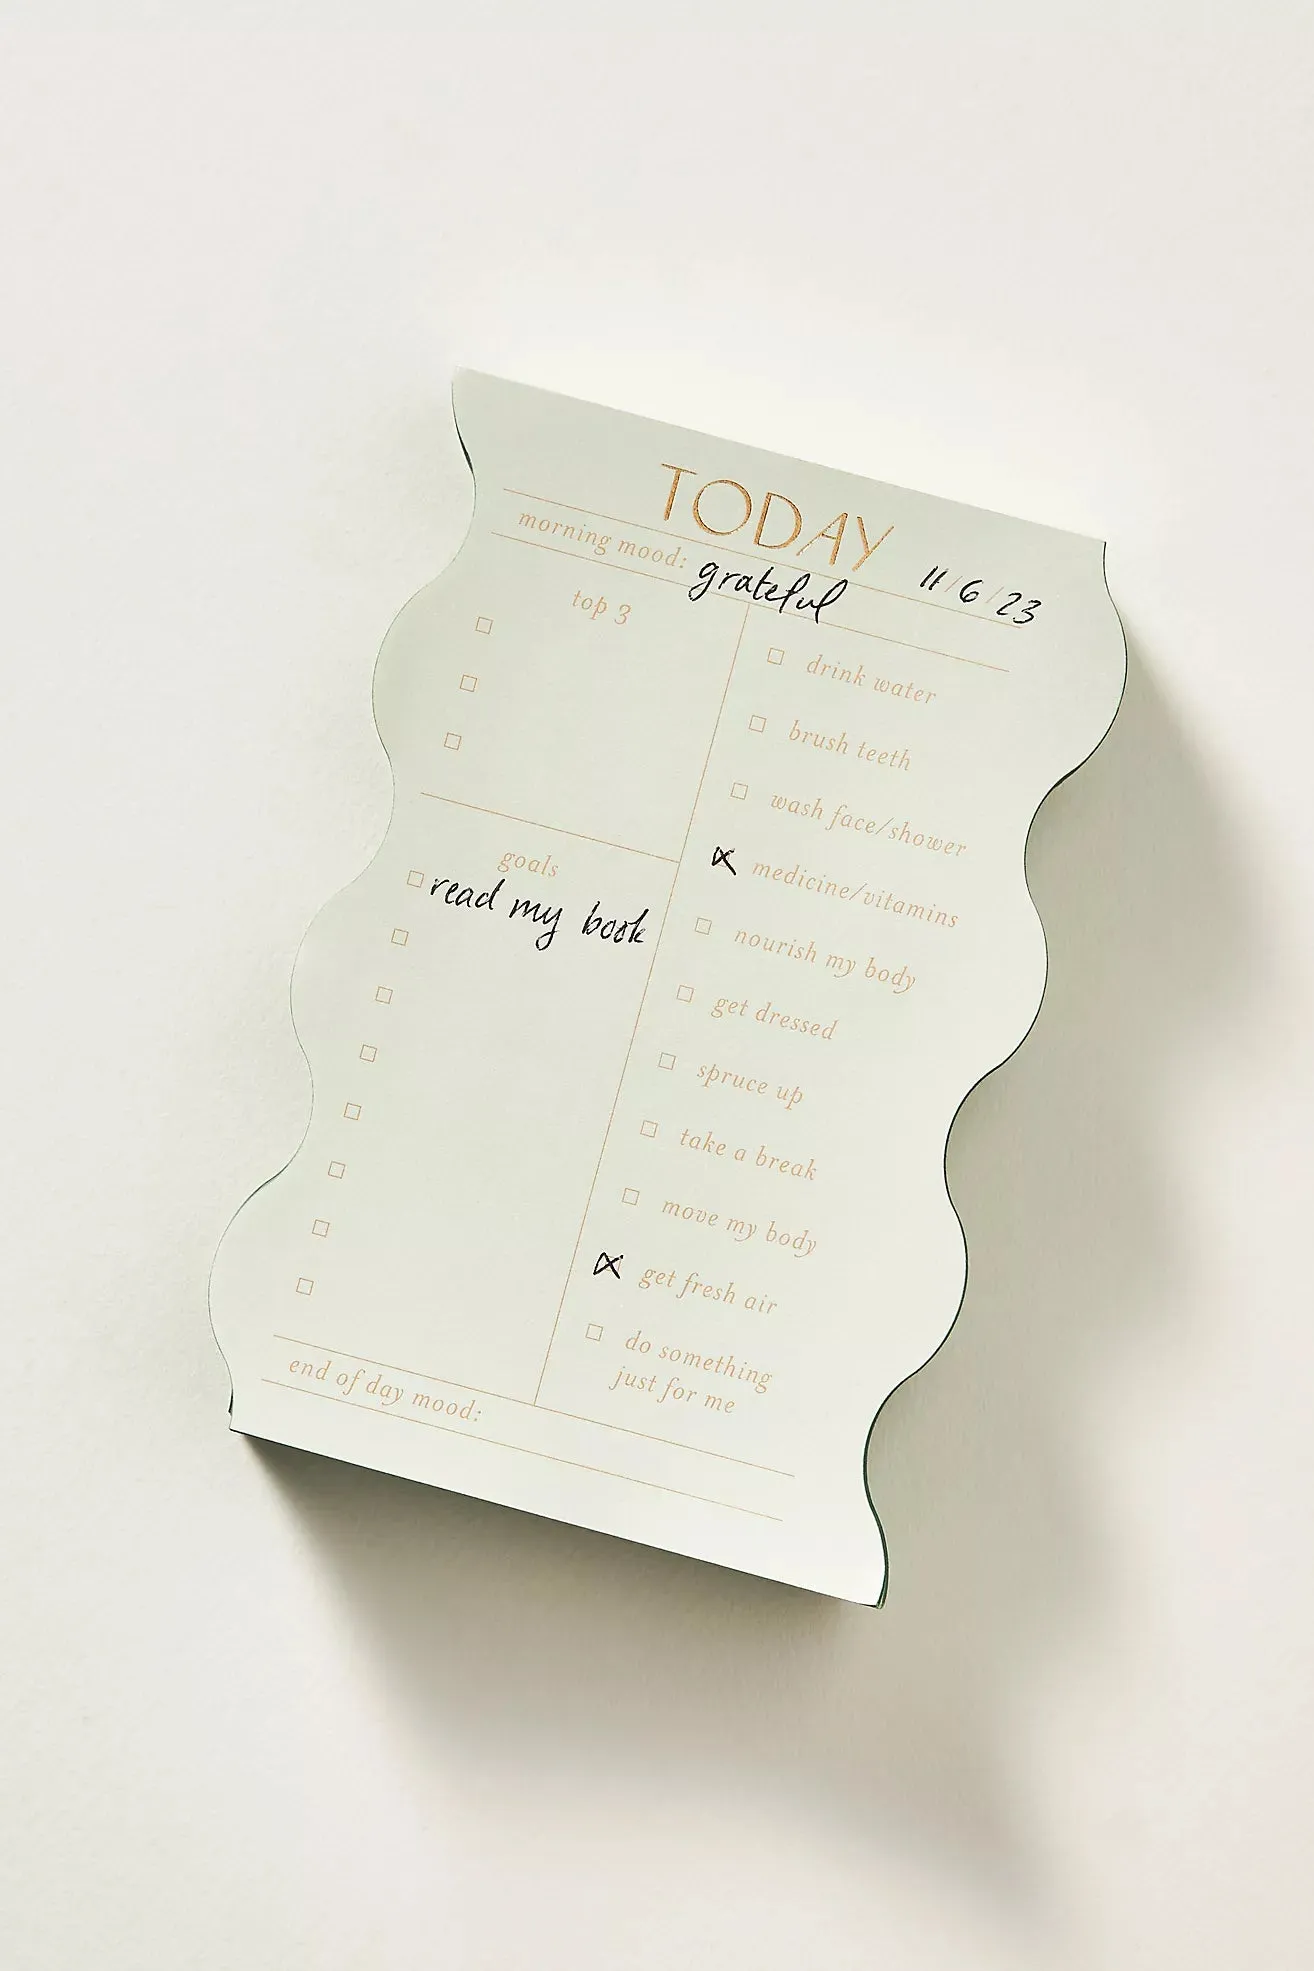 TODAY
morning mood: grateful 11/6/23
top 3
goals
read my book
drink water
brush teeth
wash face/shower
medicine/vitamins
nourish my body
get dressed
spruce up
take a break
move my body
get fresh air
do something
just for me
end of day mood: